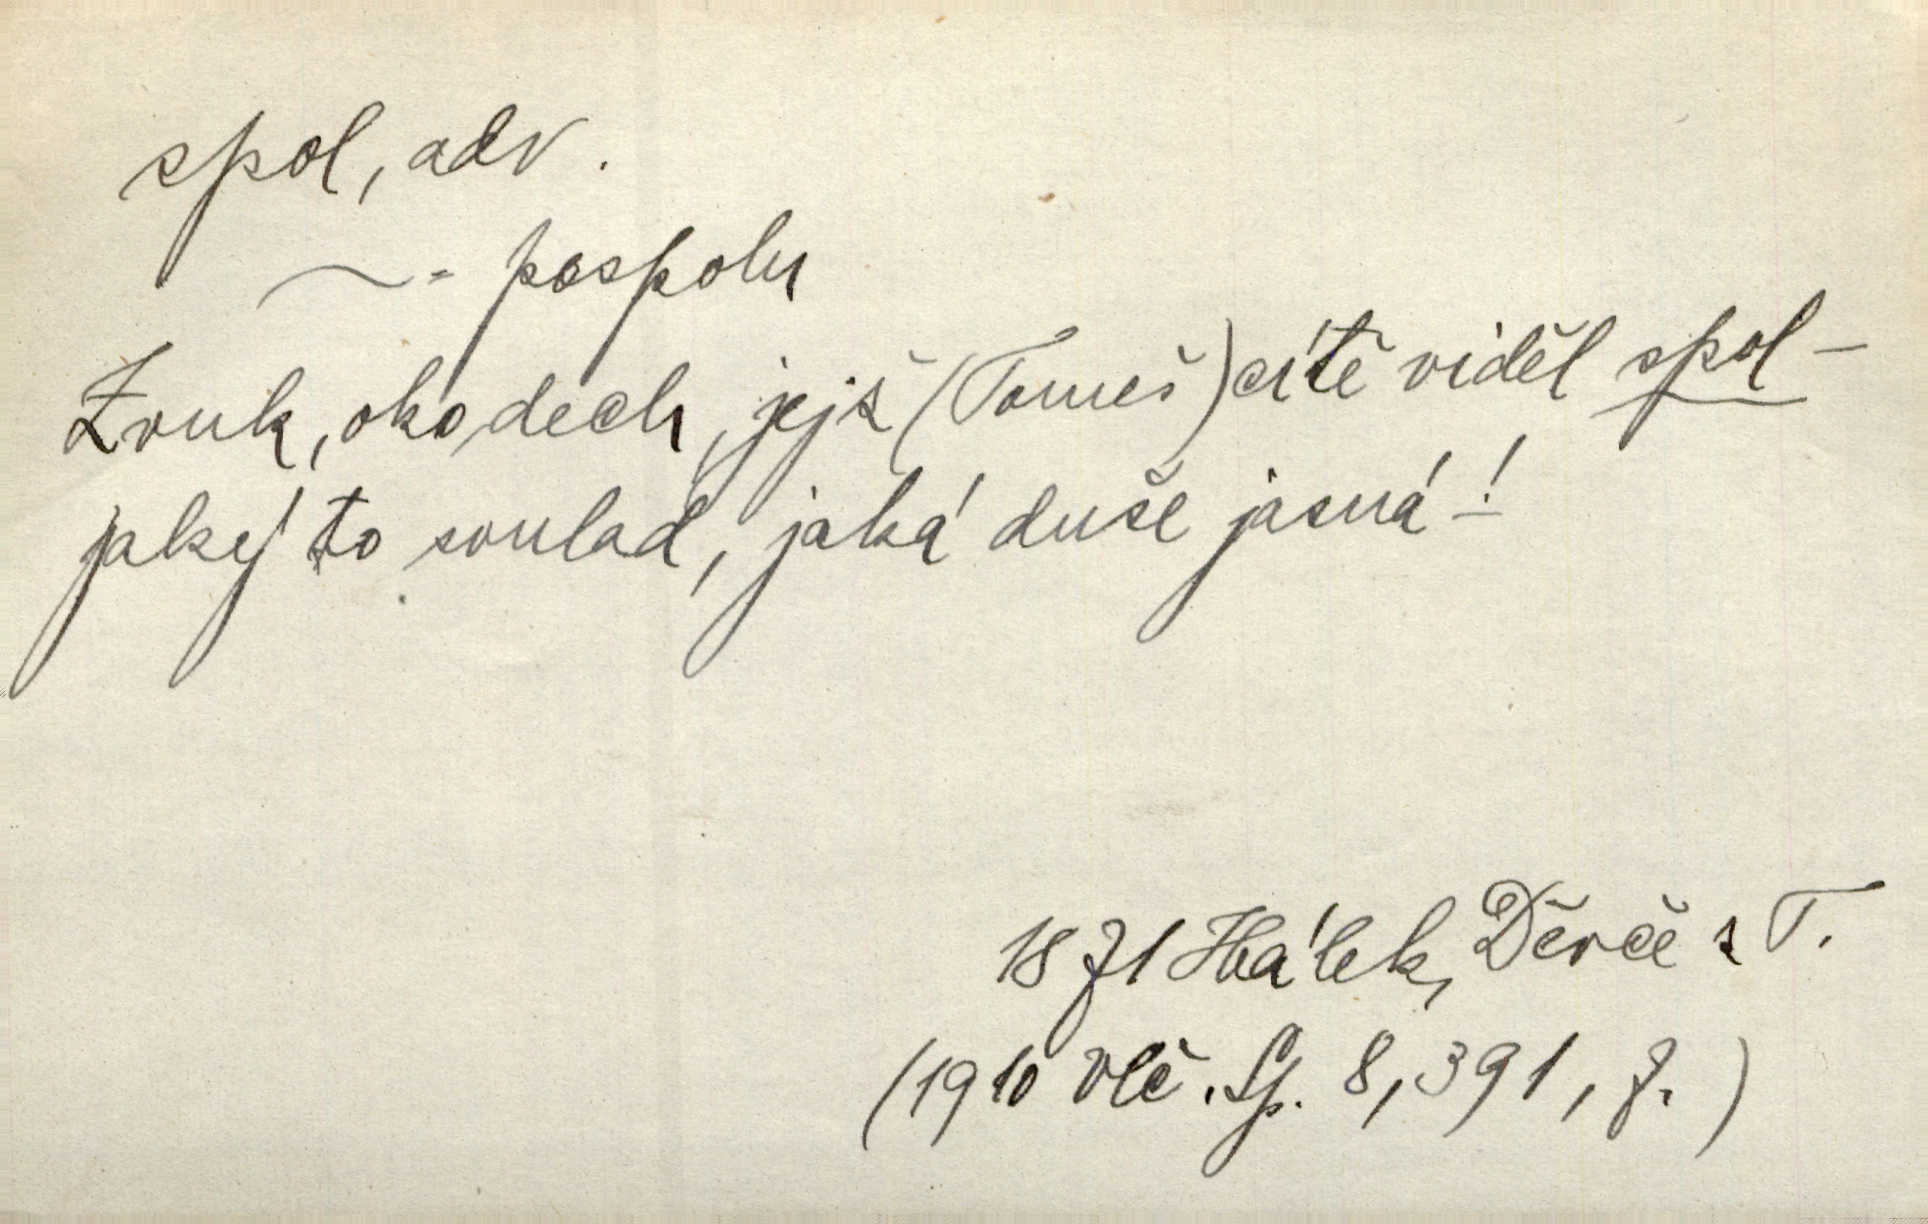 spol, adv.
~ - pospolu
Zvuk, oko dech, jejž (Tomeš) cítě viděl spol –
jaký to soulad, jaká duše jasná –!
1871 Hálek, Děvče z T.
(1910 Vlč. Sp. 8, 391, J.)